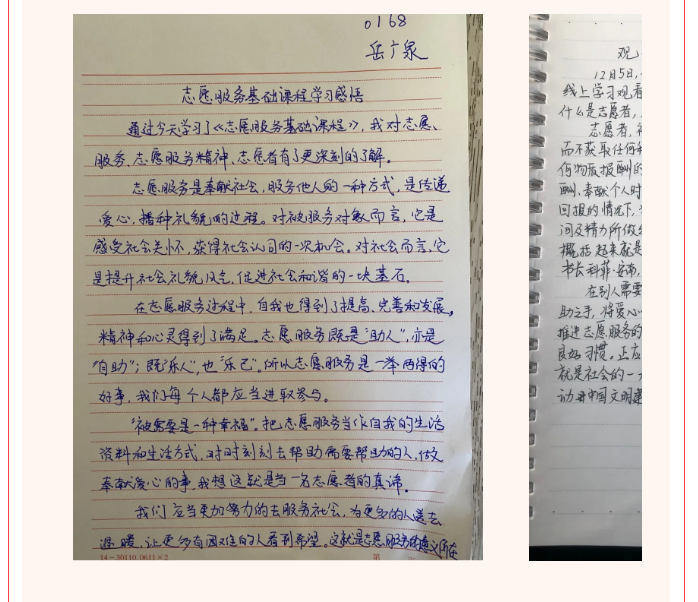 0168
岳广泉
志愿服务基础课程学习感悟
通过今天学习了《志愿服务基础课程》，我对志愿、
服务、志愿服务精神、志愿者有了更深刻的了解。
志愿服务是奉献社会，服务他人的一种方式，是传递
爱心，播种礼貌的过程。对被服务对象而言，它是
感受社会关怀，获得社会认同的一次机会。对社会而言，它
是提升社会礼貌风尚，促进社会和谐的一块基石。
在志愿服务过程中，自我也得到了提高、完善和发展，
精神和心灵得到了满足。志愿服务既是“助人”，亦是
“自助”；既“乐人”，也“乐己”。所以志愿服务是一举两得的
好事，我们每个人都应当进取参与。
“被需要是一种幸福”。把志愿服务当作自我的生活
资料和生活方式，时时刻刻去帮助需要帮助的人，做
奉献爱心的事，我想这就是当一名志愿者的真谛。
我们应当更加努力的去服务社会，为更多的人送去
温暖，让更多有困难的人看到希望。这就是志愿服务的意义所在
第
观
12月5日，
线上学习观看
什么是志愿者，
志愿者，
而不获取任何
酬，奉献个人时
回报的情况下，
间及精力所做
概括起来就是
书长科菲·安南，
在别人需要
助之手，将爱心
推进志愿服务的
良好习惯。正应
就是社会的一
动中国文明建